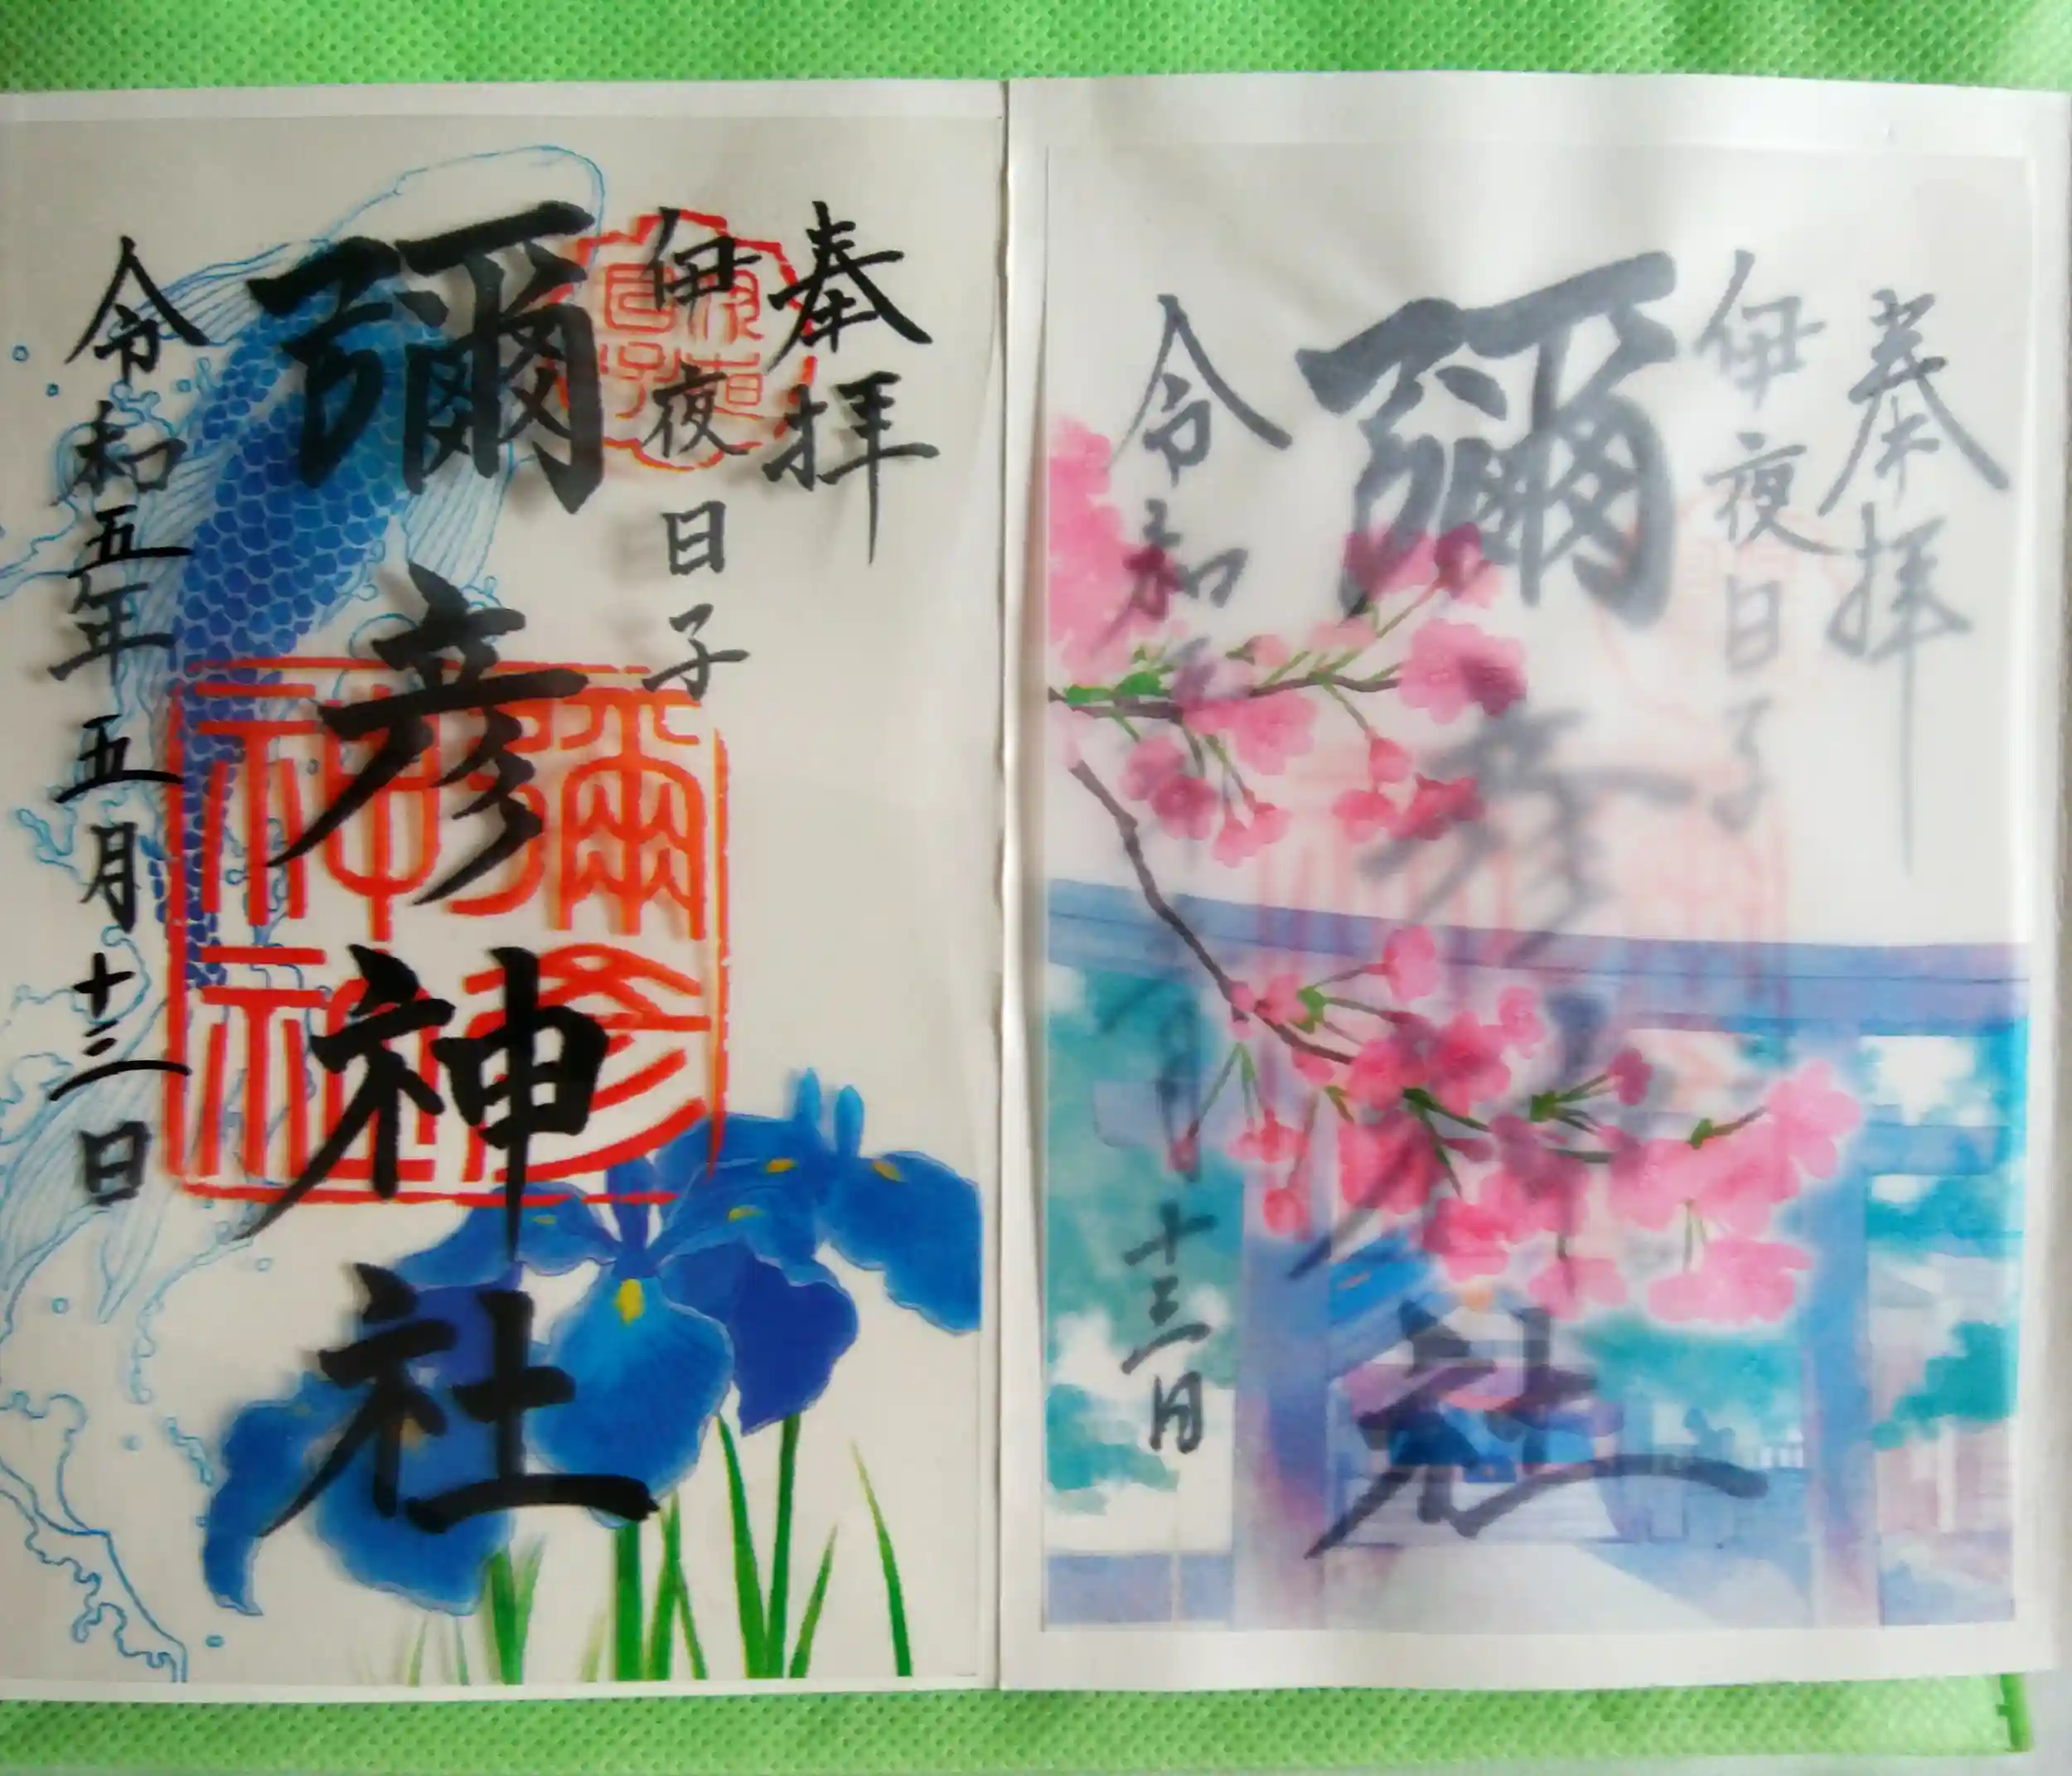 奉拝
伊夜日子
彌彦神社
令和 月十三日
奉拝
伊夜日子
彌彦神社
令和五年五月十三日
彌彦神社